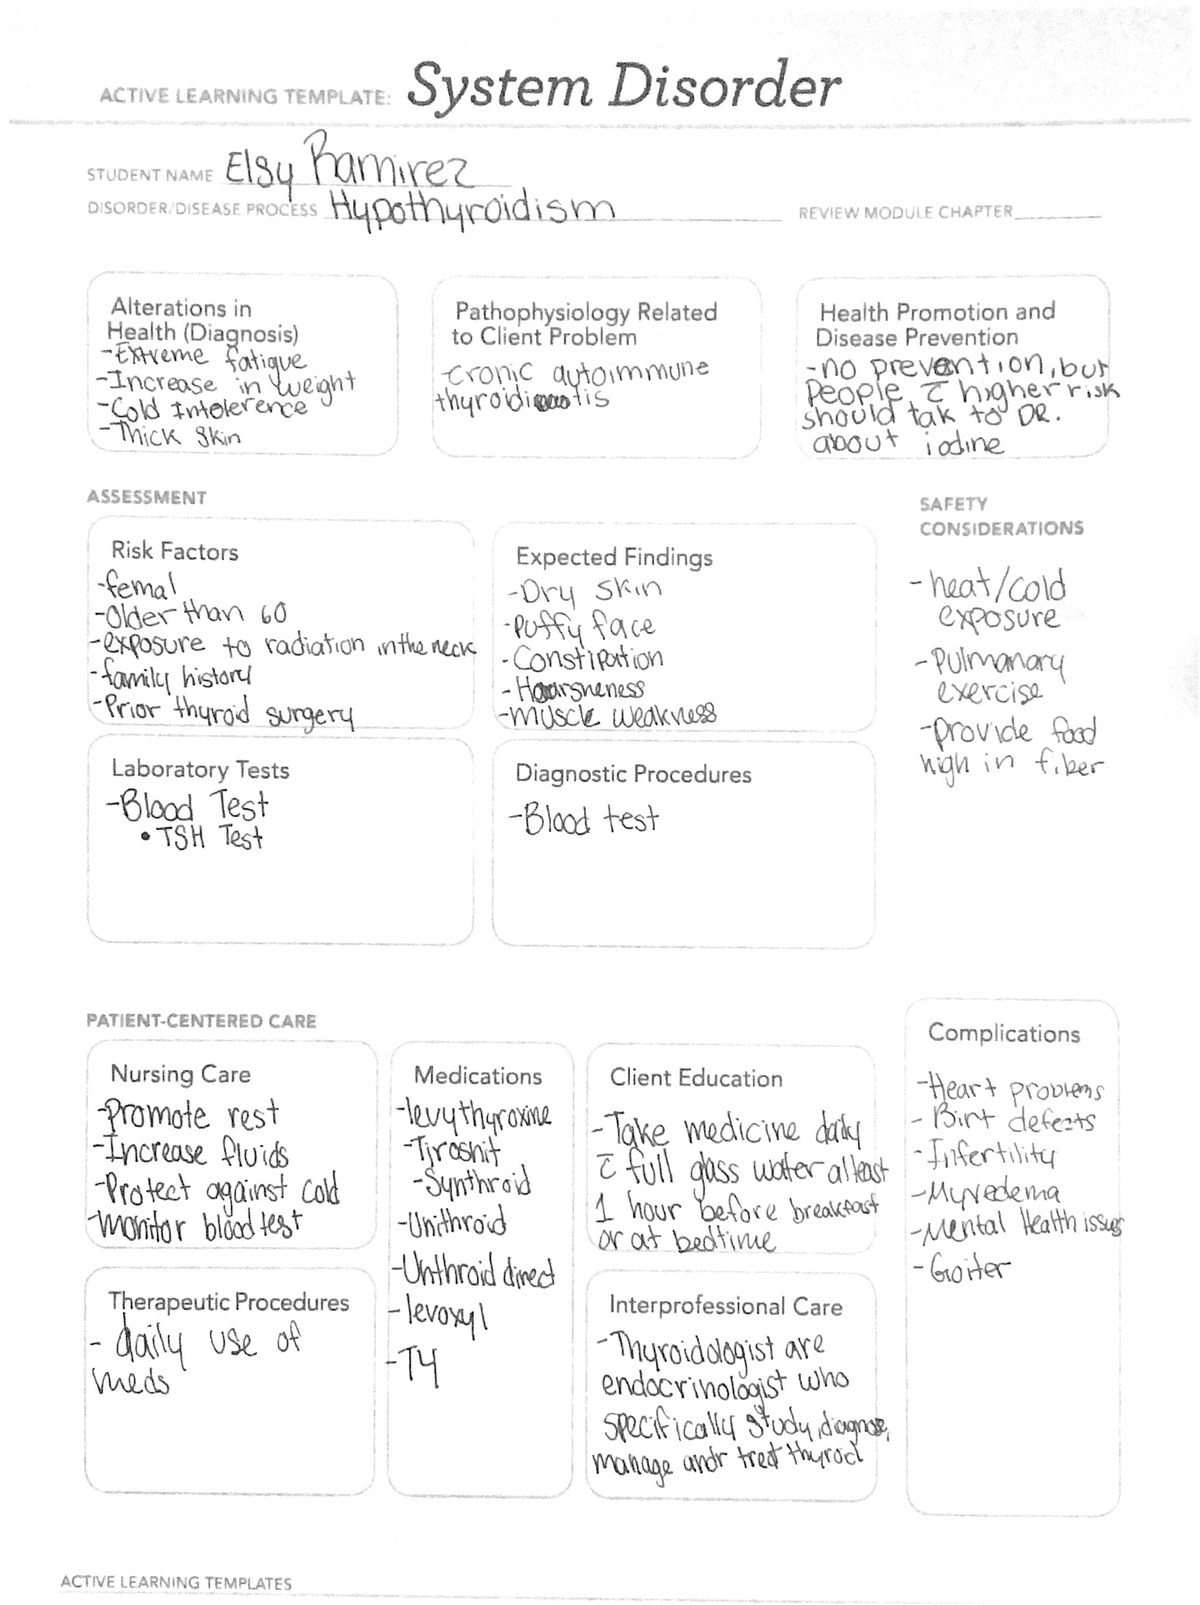 ACTIVE LEARNING TEMPLATE: System Disorder
STUDENT NAME Elsy Ramirez
DISORDER/DISEASE PROCESS Hypothyroidism
REVIEW MODULE CHAPTER
Alterations in
Health (Diagnosis)
-Extreme fatigue
-Increase in weight
-Cold Intolerence
-Thick Skin
Pathophysiology Related
to Client Problem
-cronic autoimmune
thyroiditis
Health Promotion and
Disease Prevention
-no prevention, but
People c̄ higher risk
should tak to DR.
about iodine
ASSESSMENT
Risk Factors
-femal
-Older than 60
-exposure to radiation in the neck
-family history
-Prior thyroid surgery
Expected Findings
-Dry skin
-Puffy face
-Constipation
-Hoarsness
-muscle weakness
SAFETY
CONSIDERATIONS
-heat/cold
exposure
-Pulmanary
exercise
-provide food
high in fiber
Laboratory Tests
-Blood Test
• TSH Test
Diagnostic Procedures
-Blood test
PATIENT-CENTERED CARE
Nursing Care
-Promote rest
-Increase fluids
-Protect against cold
-monitor blood test
Medications
-levythyroxine
-Tirosnit
-Synthroid
-Unithroid
-Unthroid direct
-levoxyl
-T4
Client Education
-Take medicine daily
c̄ full glass water at least
1 hour before breakfast
or at bedtime
Complications
-Heart problems
-Birt defects
-Infertility
-Myxedema
-Mental Health issues
-Goiter
Therapeutic Procedures
- daily use of
meds
Interprofessional Care
-Thyroidologist are
endocrinologist who
specifically study, diagnose,
manage and treat thyroid
ACTIVE LEARNING TEMPLATES